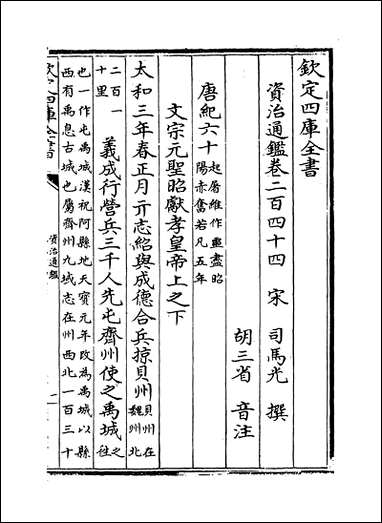 欽定四庫全書
資治通鑑卷二百四十四
宋 司馬光 撰
胡三省 音注
唐紀六十起屠維作噩盡昭陽赤奮若凡五年
文宗元聖昭獻孝皇帝上之下
太和三年春正月亓志紹與成德合兵掠貝州貝州在魏州北
二百一十里 義成行營兵三千人先屯齊州使之禹城之往
也一作屯禹城漢祝阿縣地天寶元年改為禹城以縣
西有禹息古城也屬齊州九域志在州西北一百三十
欽定四庫全書
資治通鑑
一